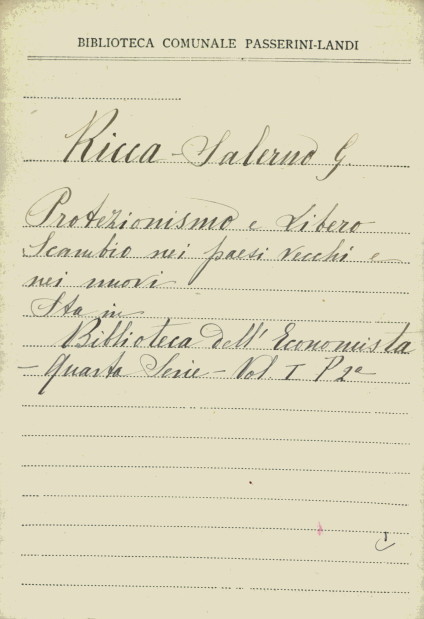 BIBLIOTECA COMUNALE PASSERINI-LANDI
Ricca-Salerno G.
Protezionismo e Libero
Scambio nei paesi vecchi e
nei nuovi
Sta in
Biblioteca dell'Economista
- Quarta Serie - Vol. I P 2ª